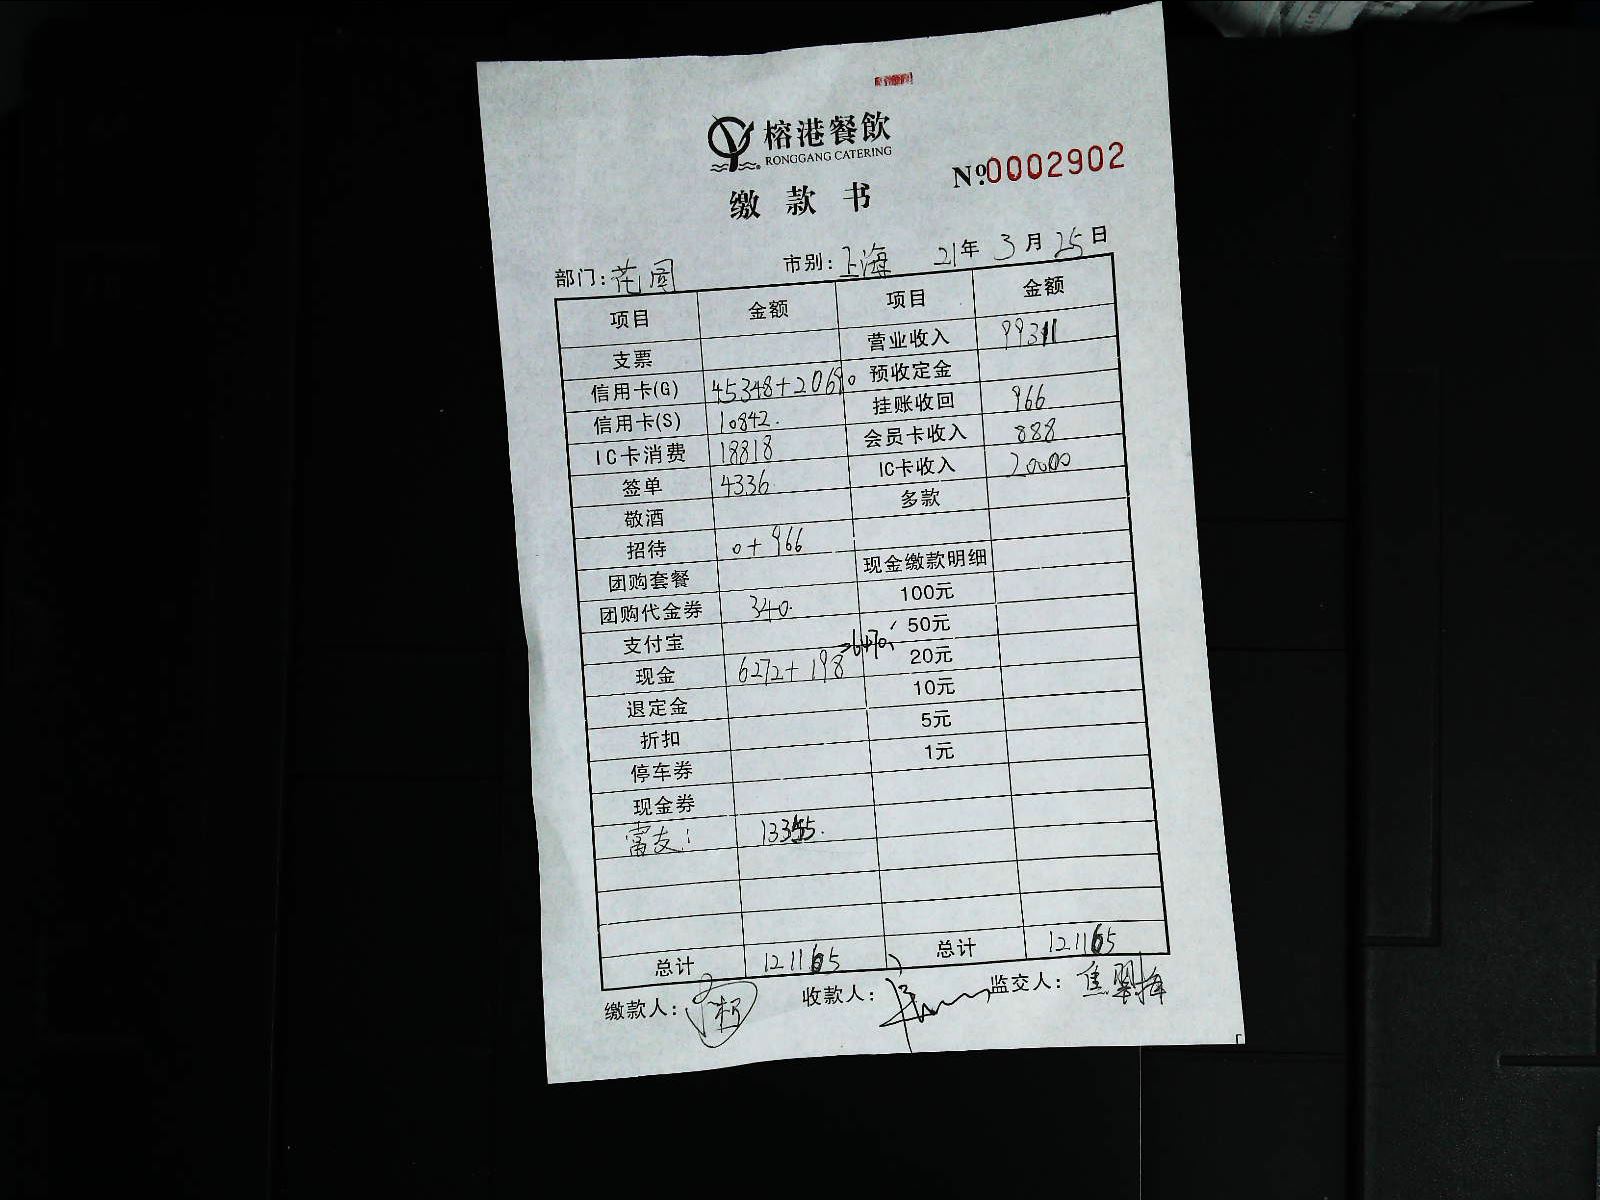 榕港餐飲
RONGGANG CATERING
缴款书
Nº:0002902
部门:花园 市别:上海 21年 3月 25日
项目 金额 项目 金额
支票 营业收入 99311
信用卡(G) 45348+20690 预收定金
信用卡(S) 10842. 挂账收回 966
IC卡消费 18818 会员卡收入 888
签单 4336. IC卡收入 20000
敬酒 多款
招待 0+966
团购套餐 现金缴款明细
团购代金券 340. 100元
支付宝 50元
现金 6272+198=6470. 20元
退定金 10元
折扣 5元
停车券 1元
现金券
富友: 13355.
总计 121165 总计 121165
缴款人: 收款人: 监交人:焦翠梅